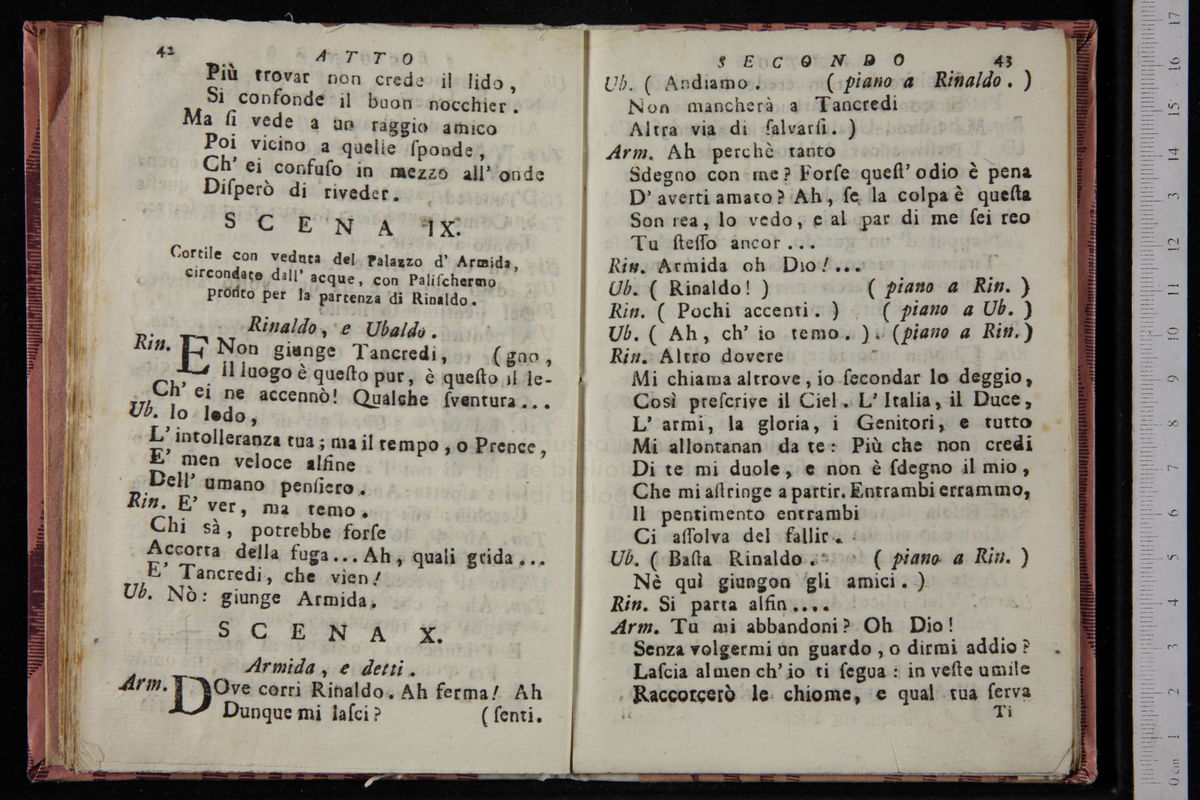 42
ATTO
Più trovar non crede il lido,
Si confonde il buon nocchier.
Ma ſi vede a un raggio amico
Poi vicino a quelle ſponde,
Ch' ei confuſo in mezzo all' onde
Diſperò di riveder.
SCENA IX.
Cortile con veduta del Palazzo d' Armida,
circondato dall' acque, con Paliſchermo
pronto per la partenza di Rinaldo.
Rinaldo, e Ubaldo.
Rin. E Non giunge Tancredi, (gno,
Il luogo è queſto pur, è queſto il le-
Ch' ei ne accennò! Qualche ſventura...
Ub. Io lodo,
L' intolleranza tua; ma il tempo, o Prence,
E' men veloce alfine
Dell' umano penſiero.
Rin. E' ver, ma temo.
Chi sà, potrebbe forſe
Accorta della fuga... Ah, quali grida...
E' Tancredi, che vien!
Ub. Nò: giunge Armida.
SCENA X.
Armida, e detti.
Arm. DOve corri Rinaldo. Ah ferma! Ah
Dunque mi laſci? (ſenti.
SECONDO
43
Ub. ( Andiamo. ( piano a Rinaldo. )
Non mancherà a Tancredi
Altra via di ſalvarſi. )
Arm. Ah perchè tanto
Sdegno con me? Forſe queſt' odio è pena
D' averti amato? Ah, ſe la colpa è queſta
Son rea, lo vedo, e al par di me ſei reo
Tu ſteſſo ancor...
Rin. Armida oh Dio!...
Ub. ( Rinaldo! ) ( piano a Rin. )
Rin. ( Pochi accenti. ) ( piano a Ub. )
Ub. ( Ah, ch' io temo. ). (piano a Rin.)
Rin. Altro dovere
Mi chiama altrove, io ſecondar lo deggio,
Così preſcrive il Ciel. L' Italia, il Duce,
L' armi, la gloria, i Genitori, e tutto
Mi allontanan da te: Più che non credi
Di te mi duole, e non è ſdegno il mio,
Che mi aſtringe a partir. Entrambi errammo,
Il pentimento entrambi
Ci aſſolva del fallir.
Ub. ( Baſta Rinaldo. ( piano a Rin. )
Nè quì giungon gli amici. )
Rin. Si parta alfin....
Arm. Tu mi abbandoni? Oh Dio!
Senza volgermi un guardo, o dirmi addio?
Laſcia almen ch' io ti ſegua: in veſte umile
Raccorcerò le chiome, e qual tua ſerva
Ti